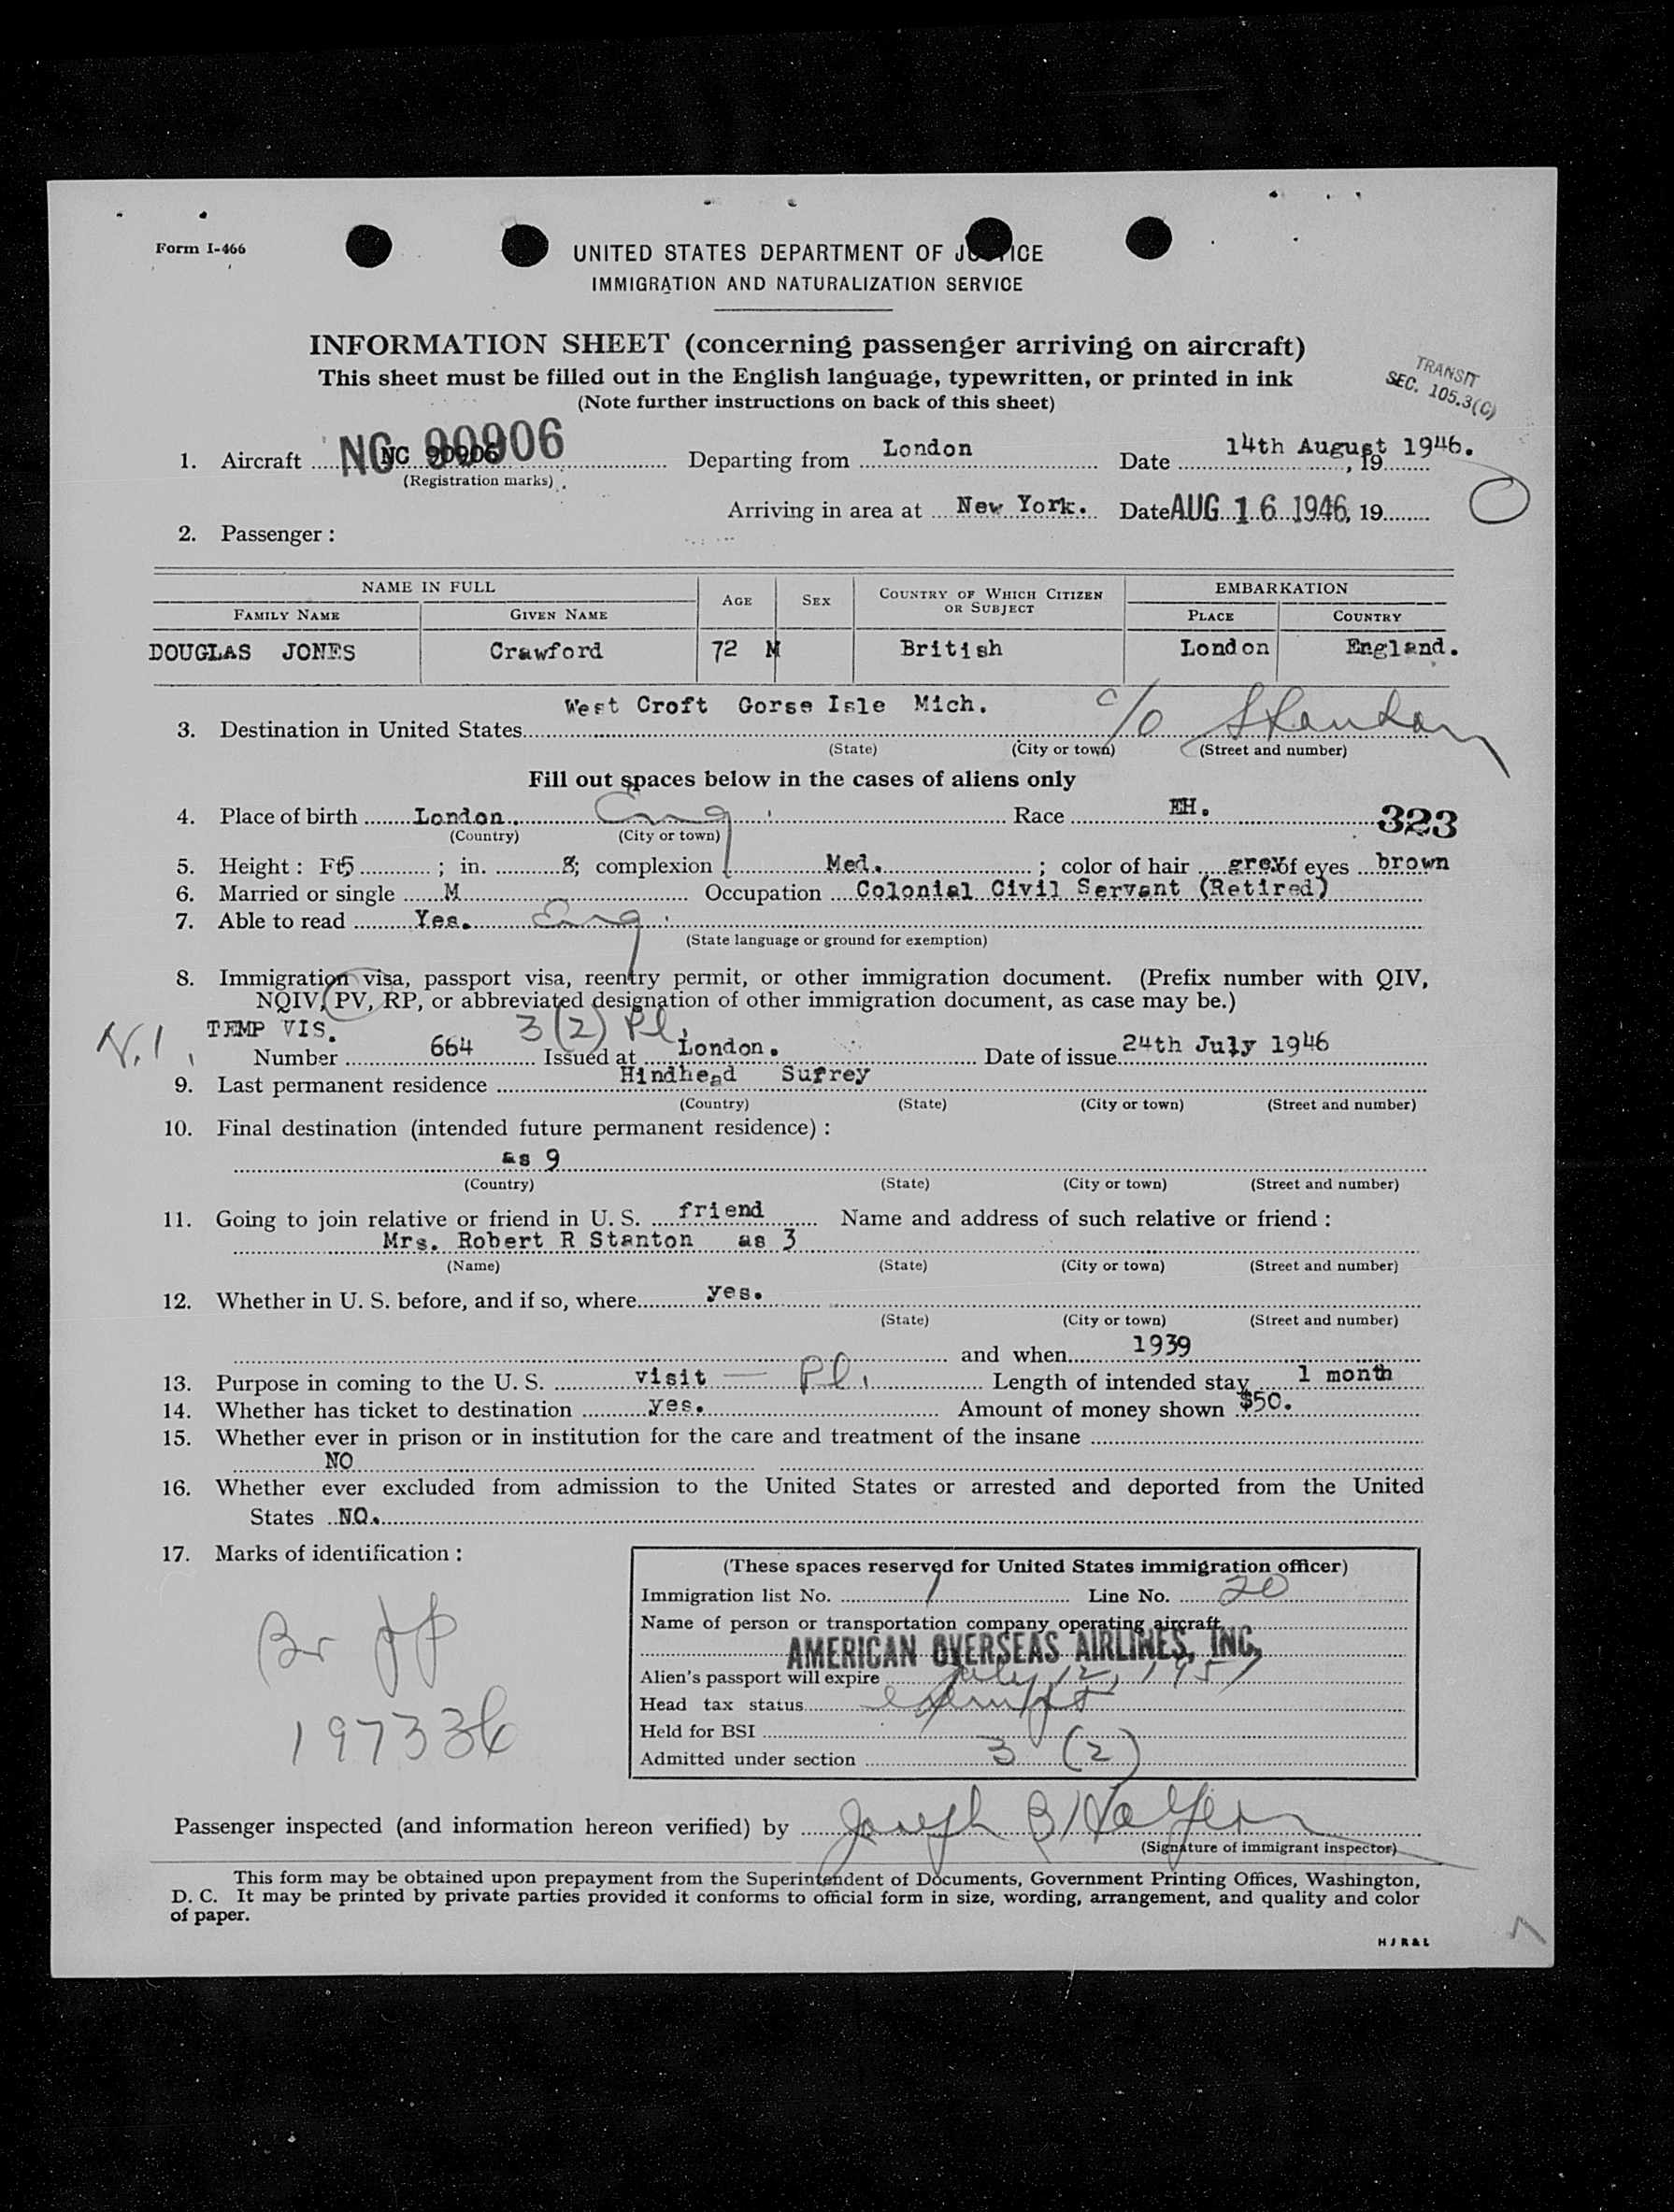 Form I-466
UNITED STATES DEPARTMENT OF JUSTICE
IMMIGRATION AND NATURALIZATION SERVICE
INFORMATION SHEET (concerning passenger arriving on aircraft)
This sheet must be filled out in the English language, typewritten, or printed in ink
(Note further instructions on back of this sheet)
TRANSIT
SEC. 105.3(C)
1. Aircraft NC 90906 NC 90906 Departing from London Date 14th August 1946. , 19
(Registration marks)
Arriving in area at New York. Date AUG 16 1946, 19
2. Passenger :
NAME IN FULL AGE SEX COUNTRY OF WHICH CITIZEN OR SUBJECT EMBARKATION
FAMILY NAME GIVEN NAME PLACE COUNTRY
DOUGLAS JONES Crawford 72 M British London England.
West Croft Gorse Isle Mich. c/o
3. Destination in United States
(State) (City or town) (Street and number)
Fill out spaces below in the cases of aliens only
4. Place of birth London. Eng. Race EH. 323
(Country) (City or town)
5. Height : Ft 5 ; in. 8; complexion Med. ; color of hair grey of eyes brown
6. Married or single M Occupation Colonial Civil Servant (Retired)
7. Able to read Yes. Eng.
(State language or ground for exemption)
8. Immigration visa, passport visa, reentry permit, or other immigration document. (Prefix number with QIV,
NQIV, PV, RP, or abbreviated designation of other immigration document, as case may be.)
TEMP VIS. 3(2) Pl.
Number 664 Issued at London. Date of issue 24th July 1946
9. Last permanent residence Hindhead Surrey
(Country) (State) (City or town) (Street and number)
10. Final destination (intended future permanent residence) :
as 9
(Country) (State) (City or town) (Street and number)
11. Going to join relative or friend in U. S. friend Name and address of such relative or friend :
Mrs. Robert R Stanton as 3
(Name) (State) (City or town) (Street and number)
12. Whether in U. S. before, and if so, where yes.
(State) (City or town) (Street and number)
and when 1939
13. Purpose in coming to the U. S. visit — Pl. Length of intended stay 1 month
14. Whether has ticket to destination yes. Amount of money shown $50.
15. Whether ever in prison or in institution for the care and treatment of the insane
NO
16. Whether ever excluded from admission to the United States or arrested and deported from the United
States NO.
17. Marks of identification :
(These spaces reserved for United States immigration officer)
Immigration list No. 1 Line No. 20
Name of person or transportation company operating aircraft
AMERICAN OVERSEAS AIRLINES, INC.
Alien's passport will expire July 12, 1951
Head tax status exempt
Held for BSI
Admitted under section 3 (2)
Br PP
197336
Passenger inspected (and information hereon verified) by Joseph
(Signature of immigrant inspector)
This form may be obtained upon prepayment from the Superintendent of Documents, Government Printing Offices, Washington,
D. C. It may be printed by private parties provided it conforms to official form in size, wording, arrangement, and quality and color
of paper.
H J R & L